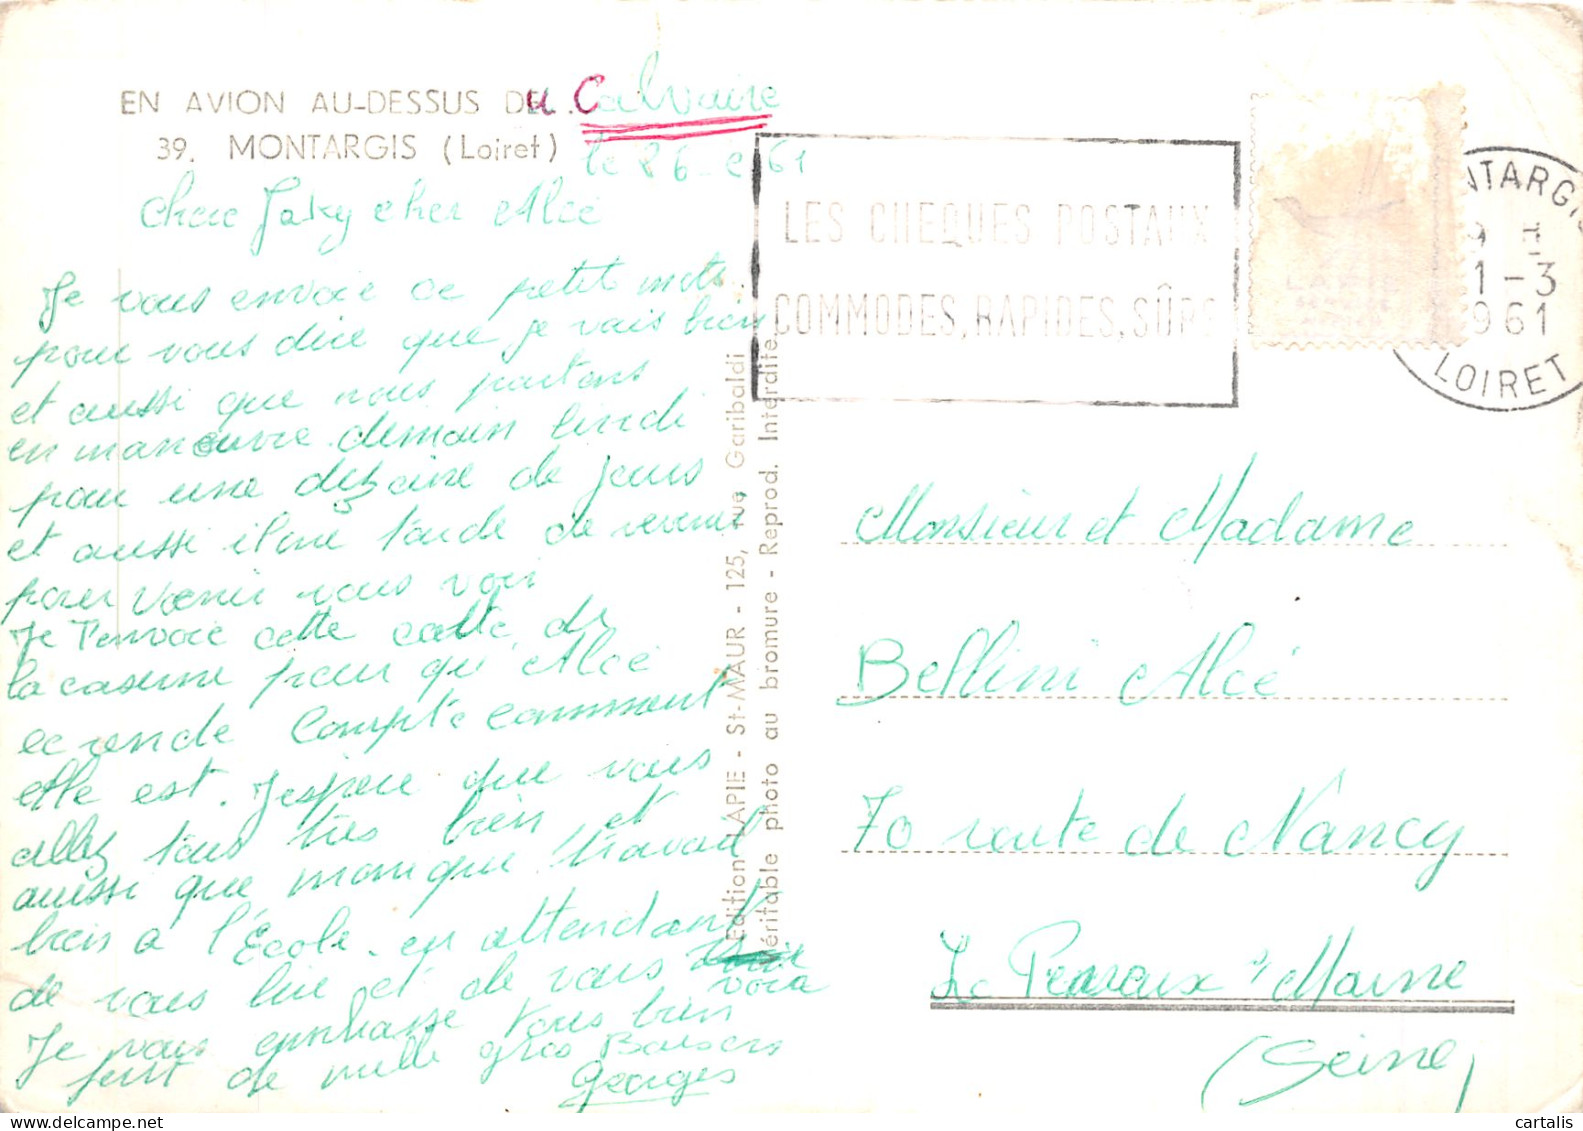 EN AVION AU-DESSUS DEu Calvaire
39. MONTARGIS (Loiret)
le 26-2 61
Chere Jaky cher Alcé
Je vous envoie ce petit mots
pour vous dire que je vais bien
et aussi que nous partons
en manœuvre demain lindi
pour une dizaine de jours
et aussi il me tarde de revenir
pour venir vous voir
Je t'envoie cette carte de
la caserne pour qu'Alcé
ce rende compte comment
elle est. J'espere que vous
allez tous très bien et
aussi que monique travail
bien a l'École. en attendant
de vous lire et de vous
voir
Je vous embrasse tous bien
fort de mille gros Baisers
Georges
Edition LAPIE - St-MAUR - 125, rue Garibaldi
éritable photo au bromure - Reprod. Interdite
LES CHEQUES POSTAUX
COMMODES, RAPIDES, SÛRS
NTARGIS
9 H
1-3
961
LOIRET
Monsieur et Madame
Bellini Alcé
70 route de Nancy
Le Perreux s/Marne
(Seine)
www.delcampe.net
cartalis